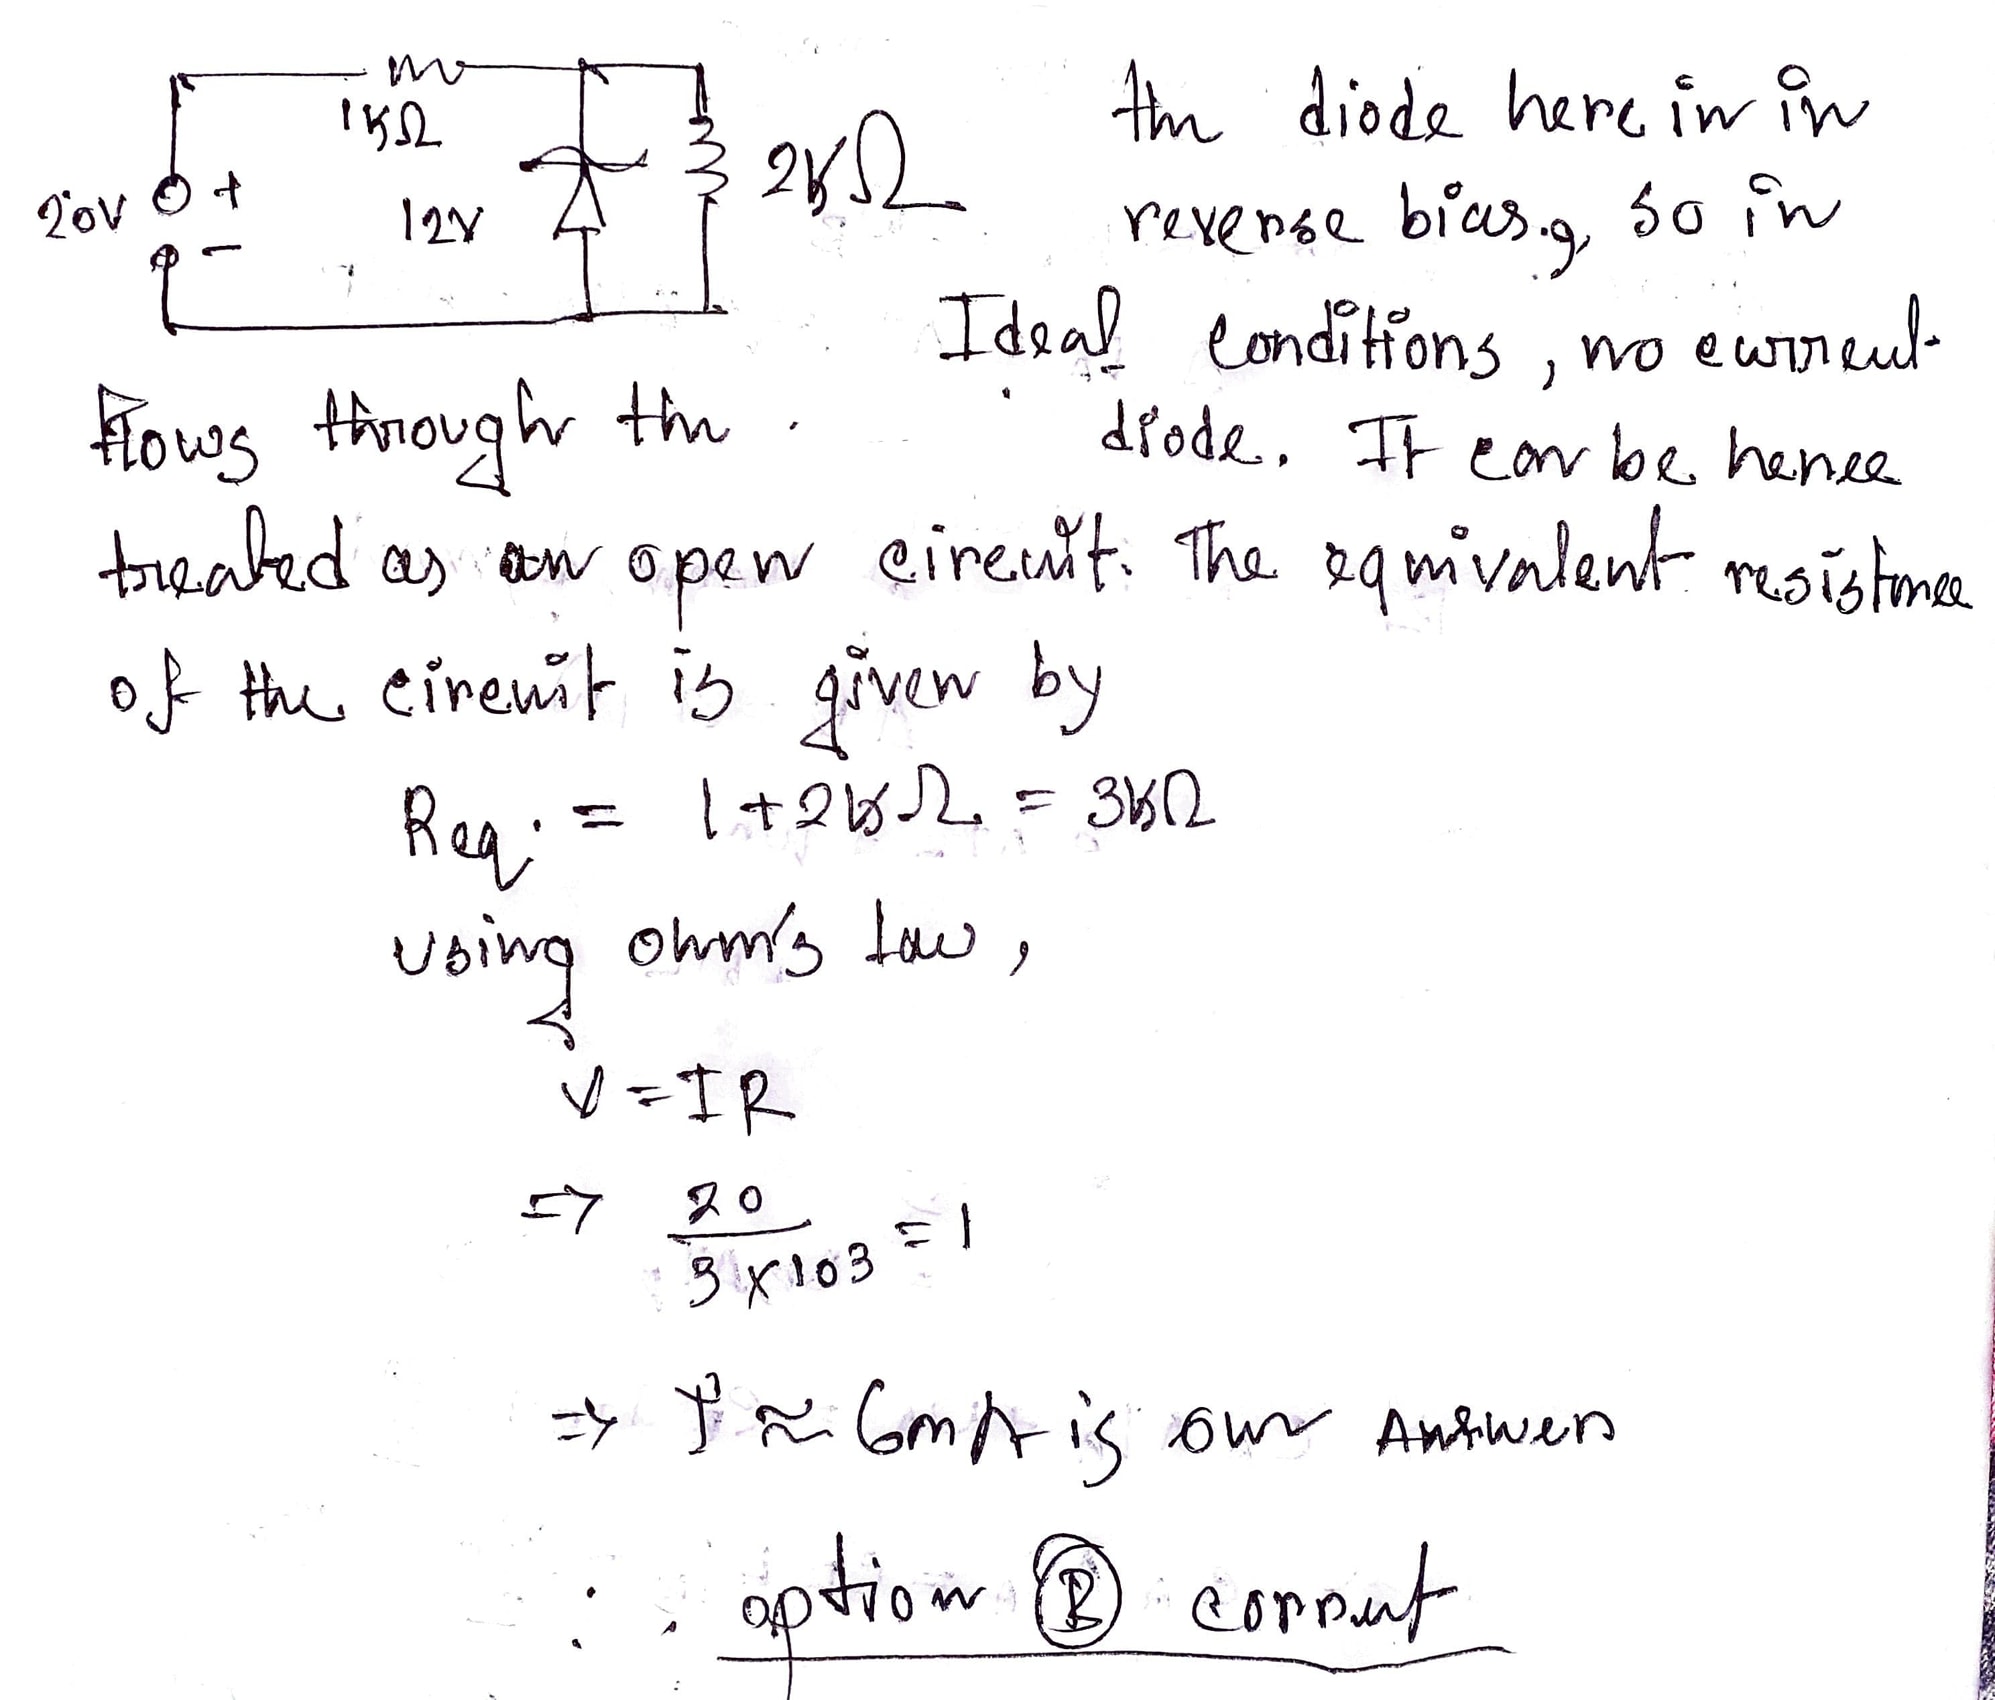 1KΩ
20V + -
12V
2KΩ
the diode here in in
reverse bias., so in
Ideal conditions, no current
flows through the diode. It can be hence
treated as an open circuit. The equivalent resistance
of the circuit is given by
Req. = 1+2KΩ = 3KΩ
using ohm's law,
V = IR
=> 20/3x103 = 1
=> I ≈ 6mA is our Answer
∴ option B correct